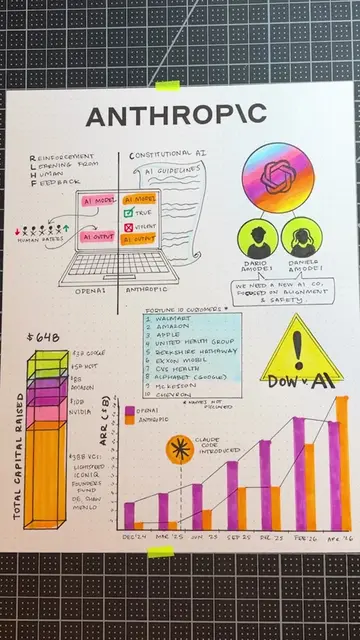 ANTHROP\C
REINFORCEMENT
LEARNING FROM
HUMAN
FEEDBACK
HUMAN RATERS
CONSTITUTIONAL AI
AI GUIDELINES
AI MODEL
AI OUTPUT
AI MODEL
TRUE
VIOLENT
AI OUTPUT
OPENAI
ANTHROPIC
DARIO
AMODEI
DANIELA
AMODEI
WE NEED A NEW AI CO.
FOCUSED ON ALIGNMENT
& SAFETY.
FORTUNE 10 CUSTOMERS *
1 WALMART
2 AMAZON
3 APPLE
4 UNITED HEALTH GROUP
5 BERKSHIRE HATHAWAY
6 EXXON MOBIL
7 CVS HEALTH
8 ALPHABET (GOOGLE)
9 MCKESSON
10 CHEVRON
* NAMES NOT
DOW v. A\
$64B
GOOGLE
AMAZON
NVIDIA
VC:
LIGHTSPEED
ICONIQ
FOUNDERS
FUND
DE SHAW
MENLO
TOTAL CAPITAL RAISED
ARR ($B)
OPENAI
ANTHROPIC
CLAUDE
CODE
INTRODUCED
DEC '24
MAR '25
JUN '25
SEP '25
DEC '25
FEB '26
APR '26